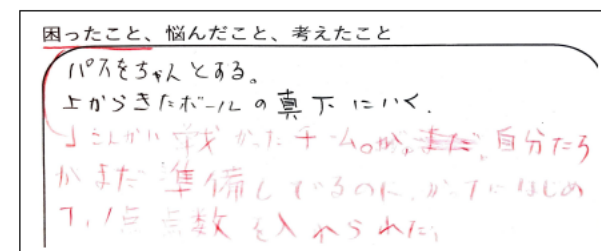 困ったこと、悩んだこと、考えたこと
パスをちゃんとする。
上からきたボールの真下にいく.
戦かったチーム。が、まだ、自分たち
がまだ準備しているのに、かってにはじめ
て、1点点数を入れられた。